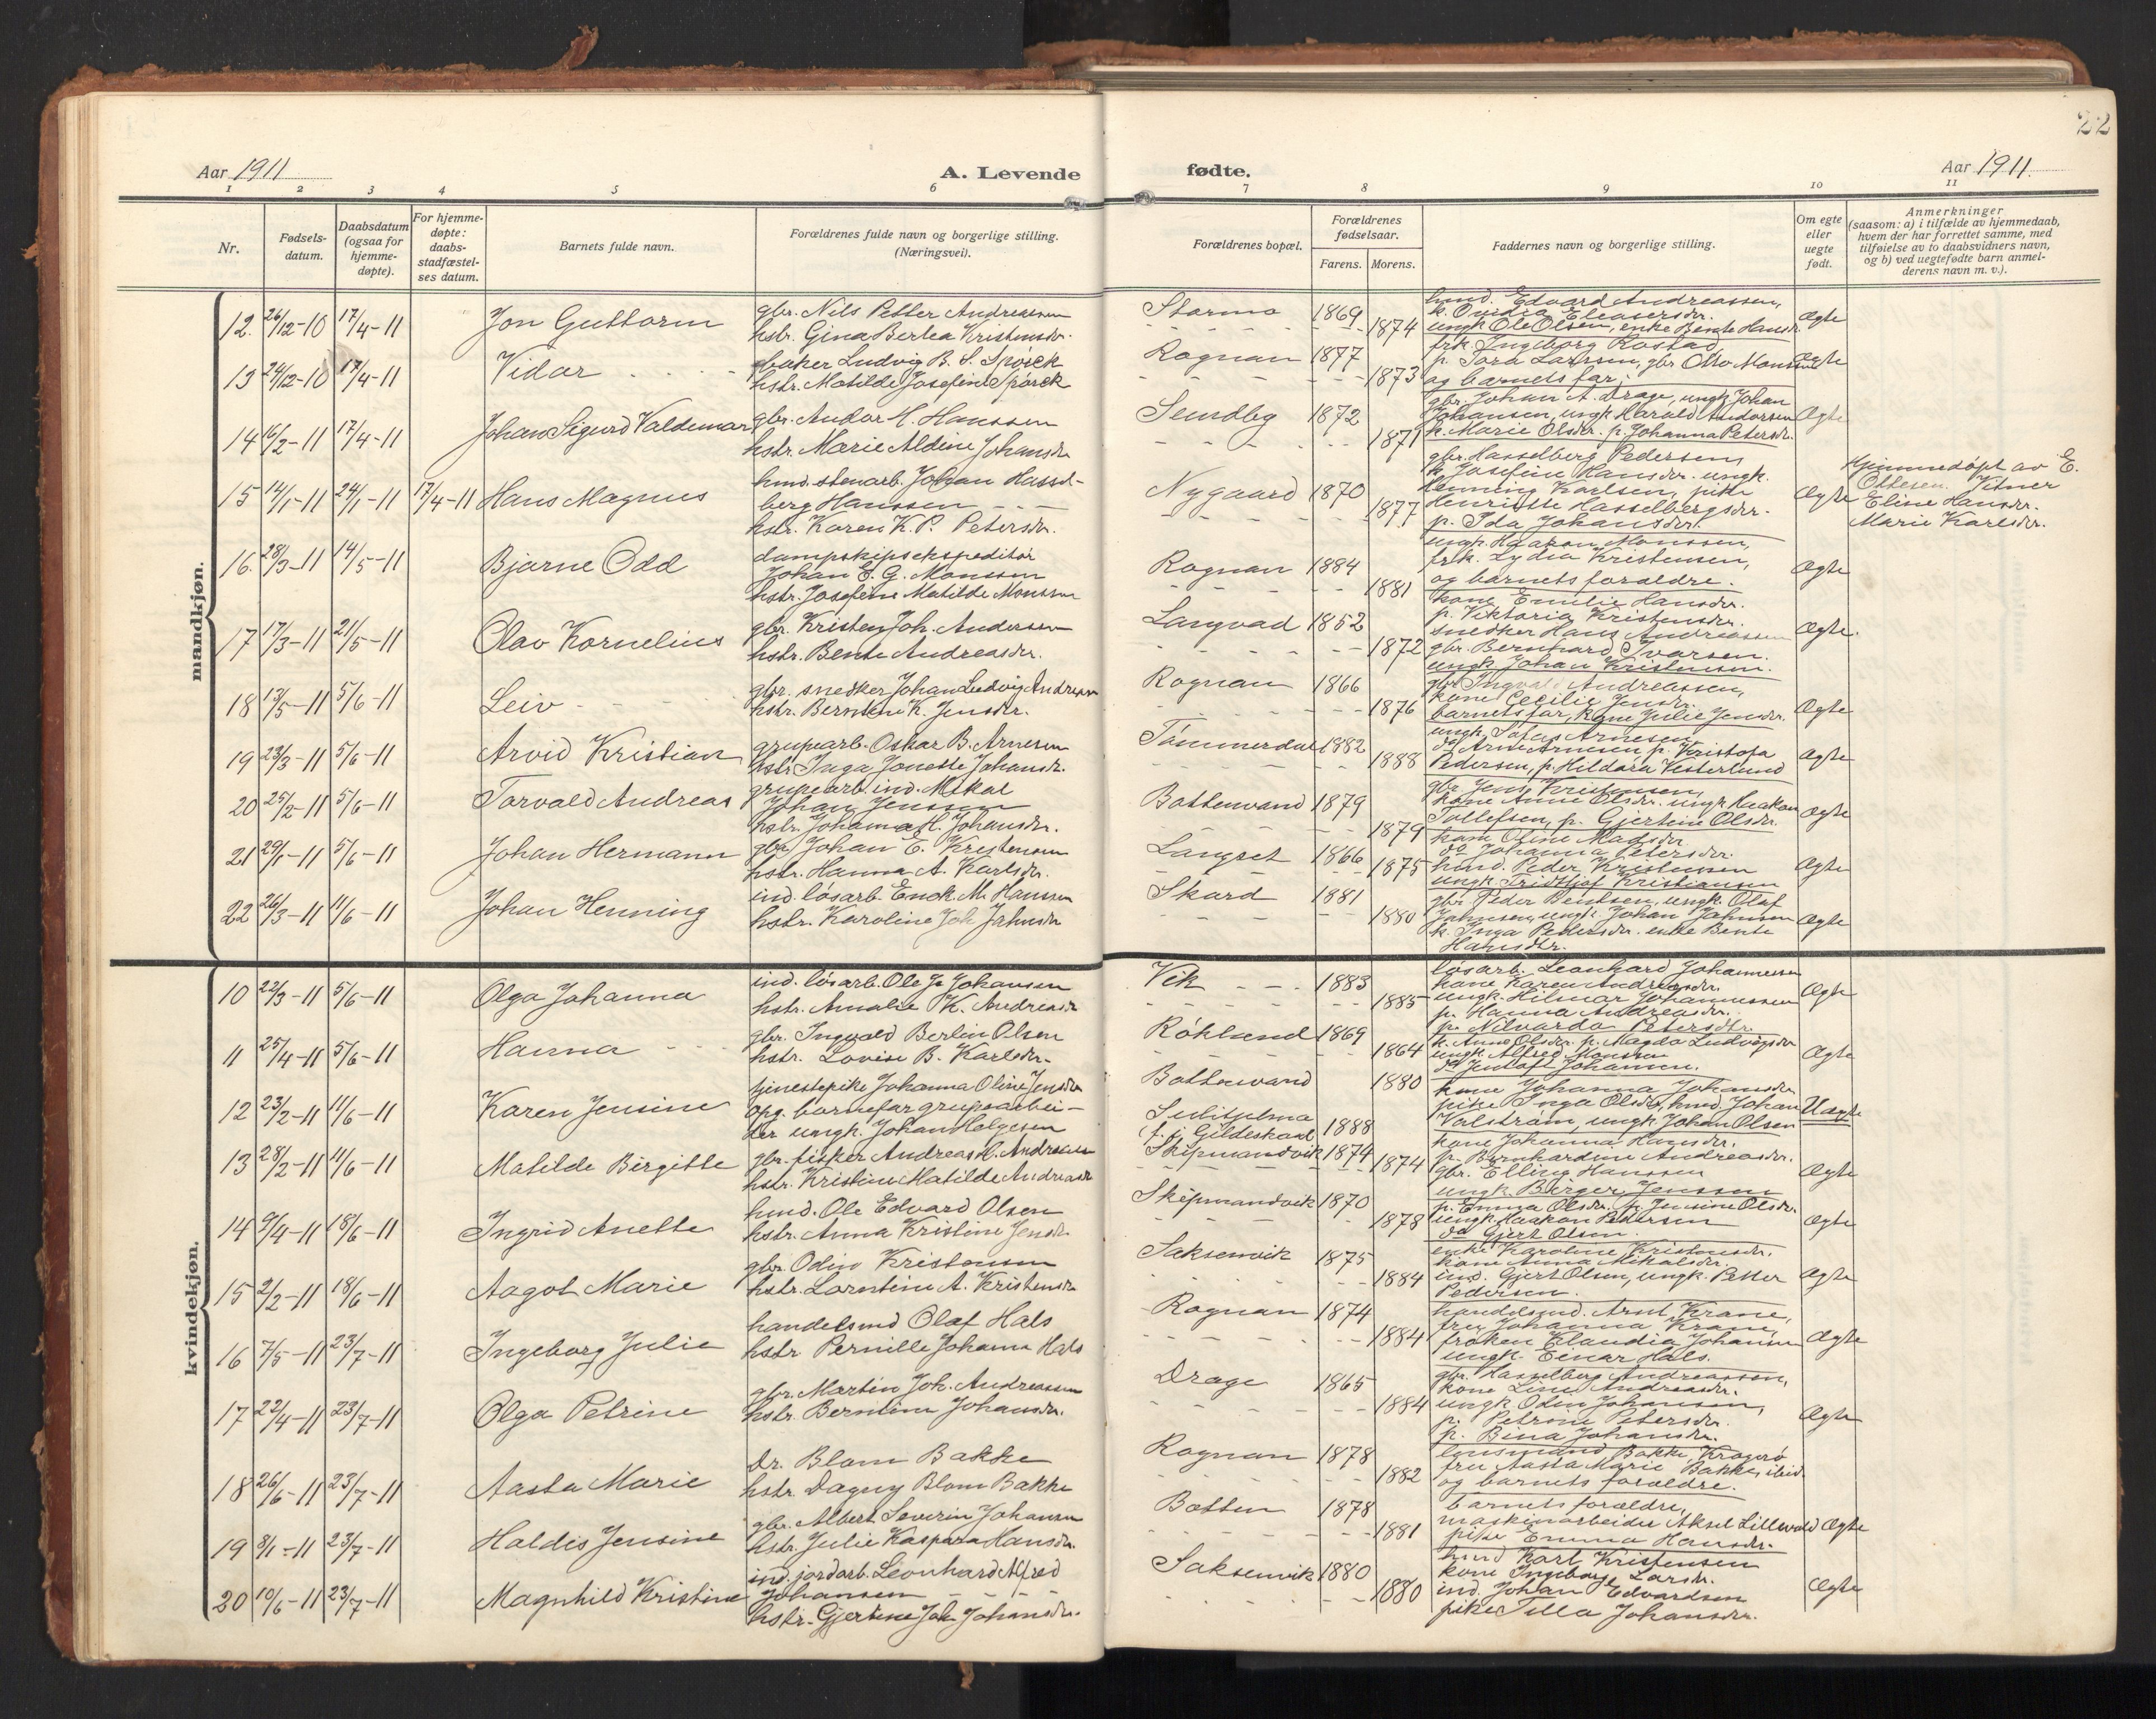 22
Aar 1911
A. Levende
fødte.
Aar 1911.
1 2 3 4 5 6 7 8 9 10 11
Nr.
Fødsels-
datum.
Daabsdatum
(ogsaa for
hjemme-
døpte).
For hjemme-
døpte:
daabs-
stadfæstel-
ses datum.
Barnets fulde navn.
Forældrenes fulde navn og borgerlige stilling.
(Næringsvei).
Forældrenes bopæl.
Forældrenes
fødselsaar.
Farens. Morens.
Faddernes navn og borgerlige stilling.
Om egte
eller
uegte
født.
Anmerkninger
(saasom: a) i tilfælde av hjemmedaab,
hvem der har forrettet samme, med
tilføielse av to daabsvidners navn,
og b) ved uegtefødte barn anmel-
derens navn m. v.).
mandkjøn.
12. 26/12-10 17/4-11 Jon Guttorm
gbr. Nils Petter Andreassen
hstr. Gina Bertea Kristensdr.
Stormo 1869 1874
hmd. Edvard Andreassen,
k. Ovidia Eleasersdr.
ungk Ole Olsen, enke Bente Hansdr.
Ægte
13 24/12-10 17/4-11 Vidar
baker Ludvig B. S. Spørck
hstr. Matilde Josefine Spørck
Rognan 1877 1873
frk. Ingeborg Rostad
p. Tora Larsen, gbr Otto Monssen
og barnets far.
Ægte
14 16/2-11 17/4-11 Johan Sigurd Valdemar
gbr. Andor H. Hanssen
hstr. Marie Aldine Johansdr
Sundby 1872 1871
gbr. Johan A. Drage, ungk Johan
Johansen, ungk Harald Andorsen
k. Marie Olsdr. p. Johanna Petersdr.
Ægte
15 14/1-11 24/1-11 17/4-11 Hans Magnus
hmd. stenarb. Johan Hassel-
berg Hanssen
hstr. Karen K. P. Petersdr.
Nygaard 1870 1877
gbr. Hasselberg Pedersen,
k. Josefine Hansdr. ungk.
Henning Karlsen, pike
Henriette Hasselbergsdr.
p. Ida Johansdr.
Ægte
Hjemmedøpt av E.
Ottesen. Vitner
Eline Hansdr.
Marie Karlsdr.
16. 28/3-11 14/5-11 Bjarne Odd
dampskipsekspeditør
Johan E. G. Monssen
hstr. Josefine Matilde Monssen
Rognan 1884 1881
ungk. Haakon Monssen,
frk. Lydia Kristensen,
og barnets forældre.
Ægte
17 17/3-11 21/5-11 Olav Kornelius
gbr. Kristen Joh. Andersen
hstr. Bente Andreasdr.
Langvad 1852 1872
kone Emilie Hansdr.
p. Viktoria Kristensdr.
snedker Hans Andreassen
gbr. Bernhard Ivarsen.
ungk Johan Kristensen.
Ægte.
18 13/5-11 5/6-11 Leiv
gbr. snedker Johan Ludvig Andreassen
hstr. Berntine K. Jensdr.
Rognan 1866 1876
gbr Ingvald Andreassen,
kone Cecilie Jensdr.
barnets far, kone Julie Jensdr.
Ægte
19 23/3-11 5/6-11 Arvid Kristian
grupearb. Oskar B. Arnesen
hstr. Inga Jonette Johansdr.
Tømmerdal 1882 1888
ungk. Sofus Arnesen
do Arne Arnesen, p. Kristofa
Pedersen, p. Hildara Vesterlund
Ægte
20 25/2-11 5/6-11 Torvald Andreas
grupearb. ind. Mikal
Johan Jenssen
hstr. Johanna H. Johansdr.
Bottenvand 1879 1879
gbr Jens Kristensen,
kone Anne Olsdr. ungk Haakon
Tollefsen, p. Gjertine Olsdr
Ægte
21 29/1-11 5/6-11 Johan Hermann
gbr Johan E. Kristensen
hstr. Hanna A. Karlsdr.
Langset 1866 1875
kone Oline Madsdr
do Johanna Petersdr.
hmd. Peder Kristensen
ungk. Fridthjof Kristiansen
Ægte
22 26/3-11 11/6-11 Johan Henning
ind. løsarb. Enok M. Hanssen
hstr. Karoline Joh Jahnsdr
Skard 1881 1880
gbr Peder Bentsen, ungk. Olaf
Jahnsen, ungk. Johan Jahnsen
k. Inga Pedersdr. enke Bente
Hansdtr.
Ægte
kvindekjøn.
10 22/3-11 5/6-11 Olga Johanna
ind. løsarb. Ole J. Johansen
hstr. Amalie K. Andreasdr
Vik 1883 1885
løsarb. Leonhard Johannessen
kone Karen Andreasdr.
ungk. Hilmar Johannessen
p. Hanna Andreasdr.
p. Nilvarda Petersdtr.
Ægte
11 25/4-11 5/6-11 Hanna
gbr. Ingvald Berlin Olsen
hstr. Lovise B. Karlsdr.
Røkland 1869 1864
k. Anne Olsdr. p. Magda Ludvigsdr
ungk. Alfred Monssen
do Jentoft Johansen.
Ægte
12 23/2-11 11/6-11 Karen Jensine
tjenestepike Johanna Oline Jensdr
opg. barnefar grupearbei-
der ungk. Johan Helgesen
Bottenvand 1880
Sulitjelma
(f. i Gildeskaal 1888
kone Johanna Johansdr
pike Inga Olsdr, hmd. Johan
Valstrøm, ungk Johan Olsen
Uægte
13 28/2-11 11/6-11 Matilde Birgitte
gbr. fisker Andreas H. Andreassen
hstr. Kristine Matilde Andreasdr
Skipmandvik 1874 1874
kone Johanna Hansdr.
p. Bernhardine Andreasdr.
gbr. Elling Hanssen
ungk. Birger Jenssen
Ægte
14 9/4-11 18/6-11 Ingrid Anette
hmd. Ole Edvard Olsen
hstr. Anna Kristine Jensdr.
Skipmandvik 1870 1878
p. Emma Olsdr. p. Jensine Olsdr.
ungk. Haakon Pettersen
do Gjert Olsen.
Ægte
15 2/2-11 18/6-11 Aagot Marie
gbr. Odin Kristensen
hstr. Lorntine A. Kristensdr
Saksenvik 1875 1884
enke Karoline Kristensdr.
kone Anna Mikalsdr.
ind. Gjert Olsen, ungk. Petter
Pedersen.
Ægte
16 7/5-11 23/7-11 Ingeborg Julie
handelsmd Olaf Hals
hstr Pernille Johanna Hals
Rognan 1874 1884
handelsmd. Arnt Krane,
fru Johanna Krane,
frøken Klaudia Johansen
ungk. Einar Hals.
Ægte
17 22/4-11 23/7-11 Olga Petrine
gbr. Martin Joh. Andreassen
hstr. Berntine Johansdr.
Drage 1865 1884
gbr. Hasselberg Andreassen,
kone Line Andreasdr.
ungk. Odin Johansen,
p. Petrine Petersdr.
p. Bina Johansdr.
Ægte
18 26/6-11 23/7-11 Aasta Marie
Dr. Blom Bakke
hstr. Dagny Blom Bakke
Rognan 1878 1882
lensmand Bakke, Kragerø
fru Aasta Marie Bakke, ibid.
og barnets forældre.
19 8/1-11 23/7-11 Haldis Jensine
gbr. Albert Severin Johansen
hstr. Julie Kaspara Hansdr.
Botten 1878 1881
barnets forældre,
maskinarbeider Aksel Lillevold
pike Emma Hansdr.
Ægte
20 10/6-11 23/7-11 Magnhild Kristine
ind. jordarb. Leonhard Alfred
Johansen
hstr. Gjertine Joh Johansdr.
Saksenvik 1880 1880
hmd Karl Kristensen
kone Ingeborg Larsdr.
ind. Johan Edvardsen
pike Tilla Johansdr.
Ægte